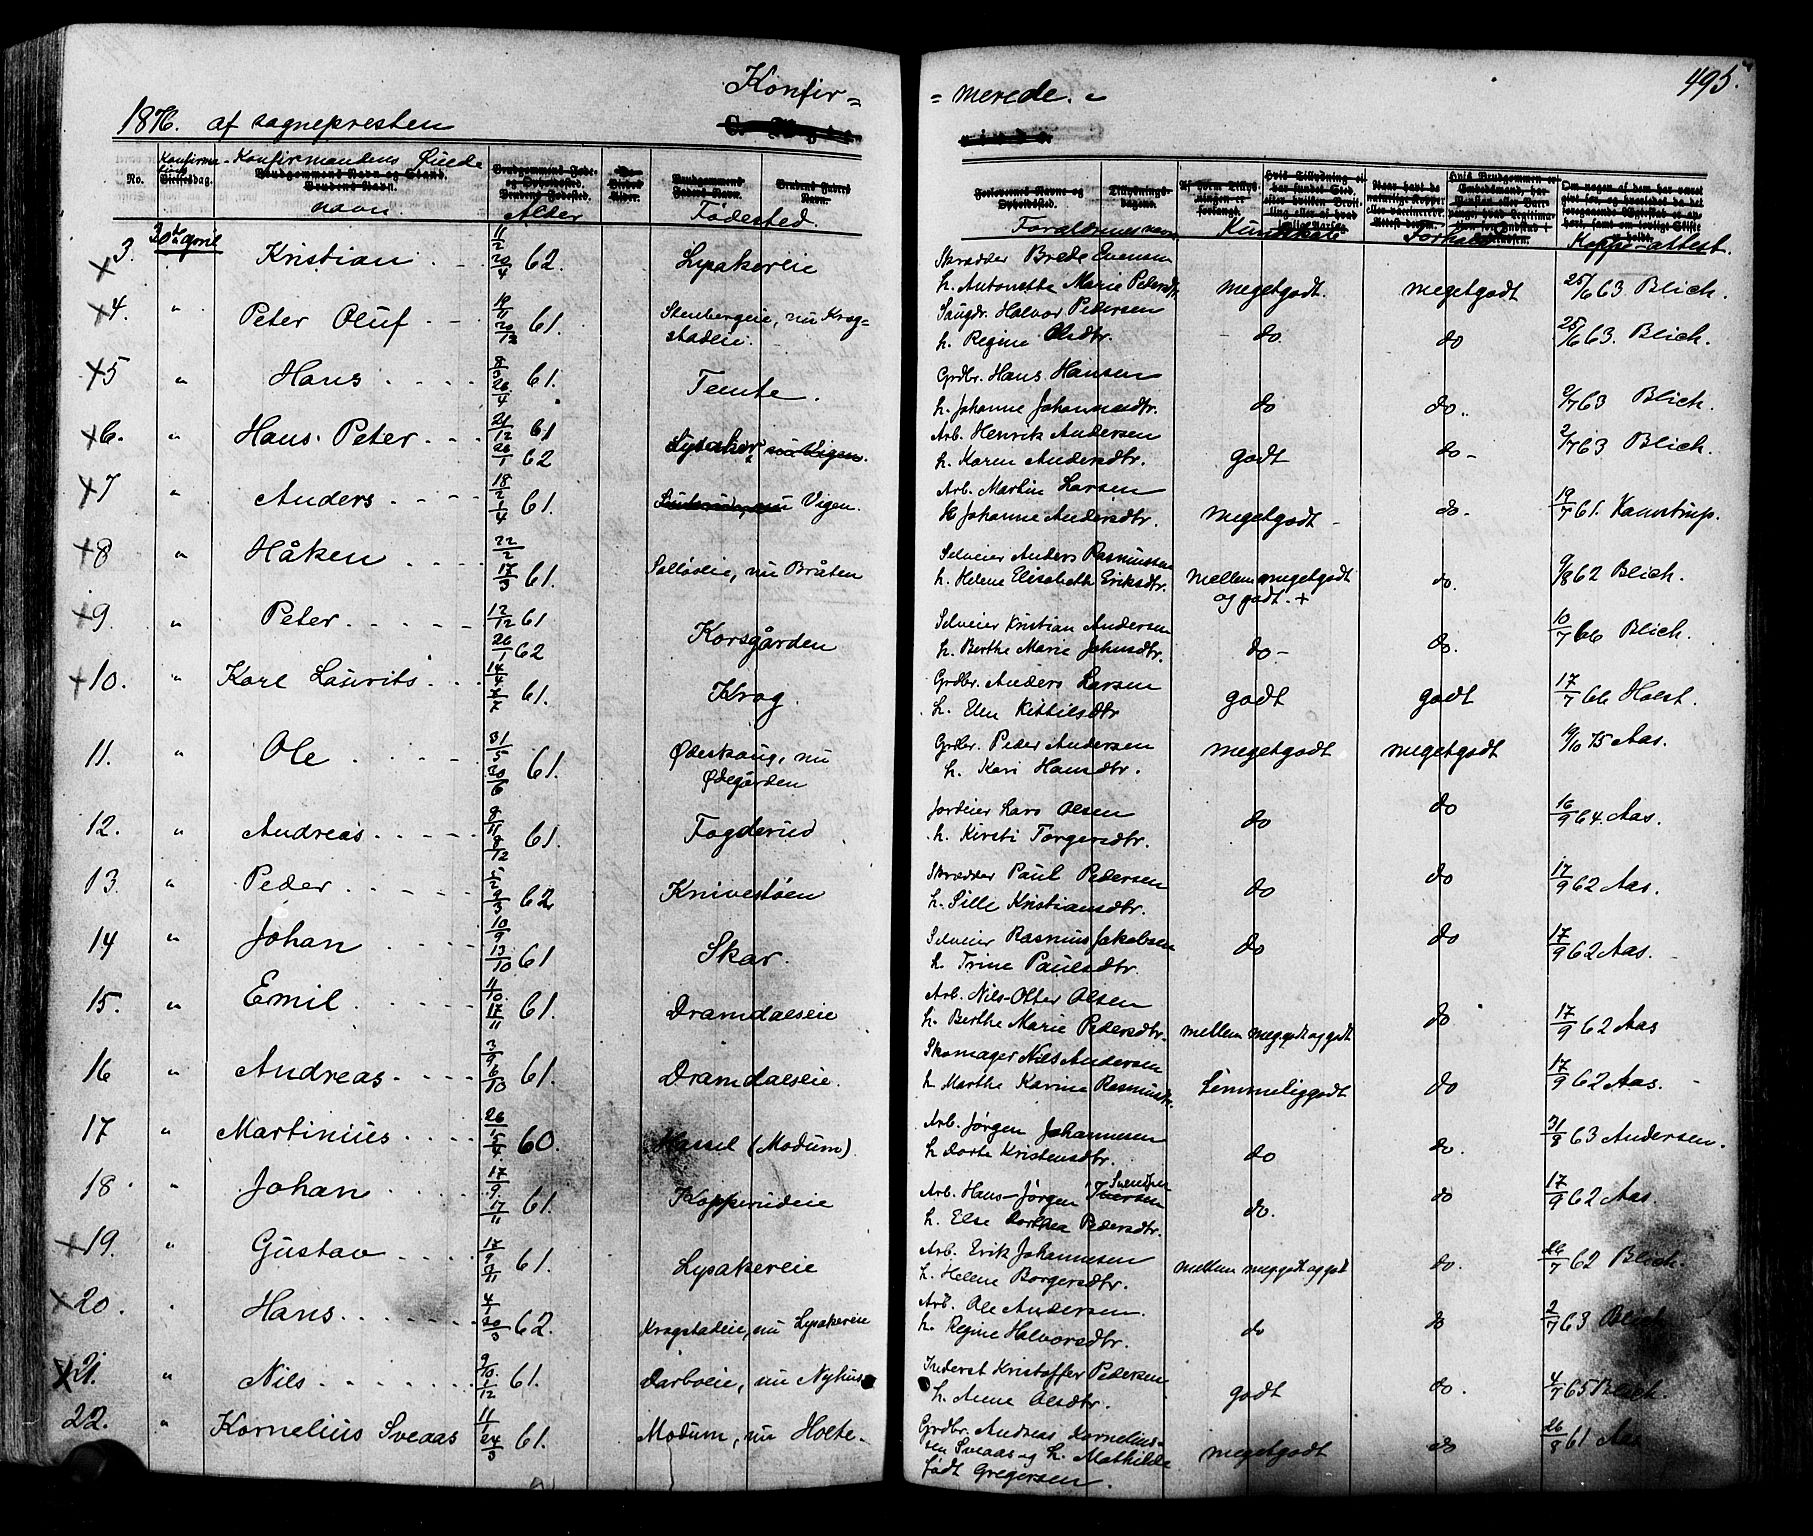 Konfir=
= merede.
495.
1876. af sognepresten
No. Konfirma- Konfirmandens Fulde navn. Alder Fødested. Forældrenes navn Kundskab Forhold Koppe-attest.
30te april
3. Kristian 11/2 20/4 62. Lysakereie Skrædder Brede Evensen h. Antonette Marie Pedersdtr megetgodt. megetgodt 25/6 63. Blich.
4. " Peter Oluf 19/11 29/12 61. Stenbergeie, nu Krog=
stadeie. Halvor Pedersen h. Regine Olsdtr. do. do 25/6 63. Blich.
5 " Hans 8/3 26/4 61. Temte. Grdbr. Hans Hansen h. Johanne Johannesdtr. do do.. 2/7 63 Blich.
6. " Hans Peter 21/12 61 26/1 62 Lysaker nu Vigen. Arb. Henrik Andersen h. Karen Andersdtr. godt do- 2/7 63 Blich.
7 " Anders 18/2 1/4 61. nu Vigen. Arb. Martin Larsen h Johanne Andersdtr. megetgodt do- 19/7 61. Kamstrup.
8 " Håken 22/2 17/3 61. nu Bråten Selveier Anders Rasmussen h. Helene Elisabeth Eriksdtr. mellem megetgodt
og godt. + do. 9/8 62 Blich.
9. " Peter 12/12 61 26/1 62 Korsgården Selveier Kristian Andersen h. Berthe Marie Johnsdtr. do- do. 10/7 66 Blich.
10. " Karl Laurits 14/4 7/7 61. Krog. Grdbr. Anders Larsen h. Elen Kittilsdtr godt godt 17/7 66 Holst.
11. " Ole 31/5 30/6 61. Ødeskaug, nu
Ødegården Grdbr. Peder Andersen h. Kari Hansdtr. megetgodt megetgodt 75 Aas.
12. " Andreas 8/11 8/12 61. Fogderud Jordeier Lars Olsen h. Kirsti Torgersdtr. do do 16/9 64. Aas.
13. " Peder 62 Knivestøen Skrædder Paul Pedersen h. Sille Kristiansdtr. do do 17/9 62 Aas.
14 " Johan 10/9 13/10 61 Skar. Selveier Rasmus Jakobsen h. Trine Paulsdtr. do do 17/9 62 Aas.
15. " Emil 11/10. 17/11 61. Dramdalseie Arb. Nils-Otter Olsen h. Berthe Marie Pedersdtr. mellem meg.godt og godt do 17/9 62 Aas
16 " Andreas 3/9 6/10 61. Dramdalseie. Skomager Nils Andersen h Marthe Karine Rasmusdtr. temmeliggodt do 17/9 62 Aas.
17 " Martinius 26/1 15/4 60. (Modum). Arb. Jørgen Johannesen h Dorte Kristensdtr. do do. 31/8 63 Andersen.
18. " Johan 17/9. 17/11 61. Kopperudeie Arb. Hans-Jørgen Svendsen h. Else Dorthea Pedersdtr. do. do 17/9 62 Aas.
19. " Gustav 17/9 61. Lysakereie Arb. Erik Johannesen h. Helene Borgersdtr. mellem meg.godt og godt do. 26/7 62 Blich.
20. " Hans 4/1 30/3 62. Krogstadeie, nu Lysakereie Arb. Ole Andersen. h. Regine Halvorsdtr. do do 2/7 63 Blich
21. " Nils 9/10. 1/12 61. Darboeie, nu Nyhus Inderst Kristoffer Pedersen h. Anne Olsdtr. godt do. 4/7 65 Blich.
22. " Kornelius Sveaas 11/1 24/3 61. Modum, nu Holte. Grdbr. Andreas Kornelius=
sen Sveaas og h. Mathilde
født Gregersen megetgodt do 26/8 61